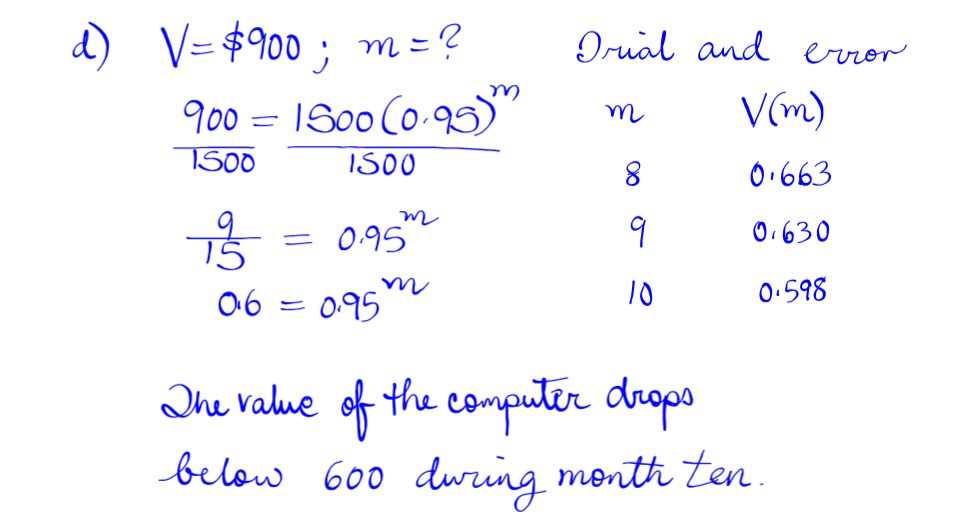 d) V = $900 ; m = ?
900 = 1500(0.95)^m
1500 1500
9/15 = 0.95^m
0.6 = 0.95^m
Trial and error
m V(m)
8 0.663
9 0.630
10 0.598
The value of the computer drops
below 600 during month ten.